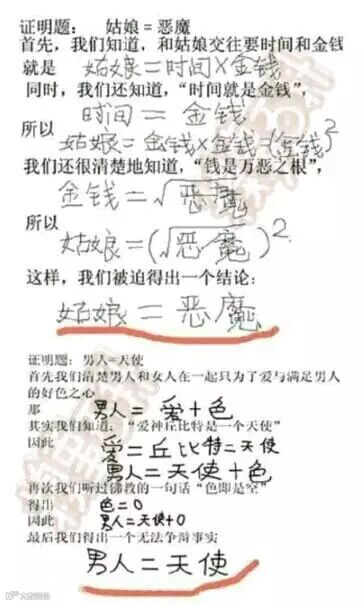 证明题： 姑娘=恶魔
首先，我们知道，和姑娘交往要时间和金钱
就是 姑娘=时间×金钱
同时，我们还知道，“时间就是金钱”，
时间=金钱
所以
姑娘=金钱×金钱=(金钱)²
我们还很清楚地知道，“钱是万恶之根”，
金钱=√恶魔
所以
姑娘=(√恶魔)²
这样，我们被迫得出一个结论：
姑娘=恶魔
证明题：男人=天使
首先我们清楚男人和女人在一起只为了爱与满足男人
的好色之心
那 男人=爱+色
其实我们知道：“爱神丘比特是一个天使”
因此 爱=丘比特=天使
男人=天使+色
再次我们听过佛教的一句话“色即是空”
得出 色=0
因此 男人=天使+0
最后我们得出一个无法争辩事实
男人=天使